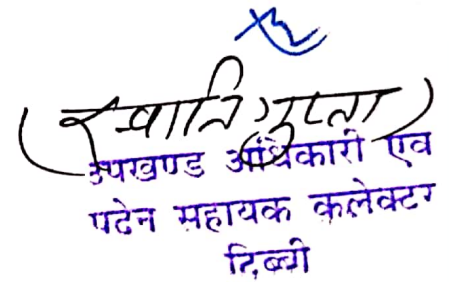 (स्वाति गुप्ता)
उपखण्ड अधिकारी एवं
पदेन सहायक कलेक्टर